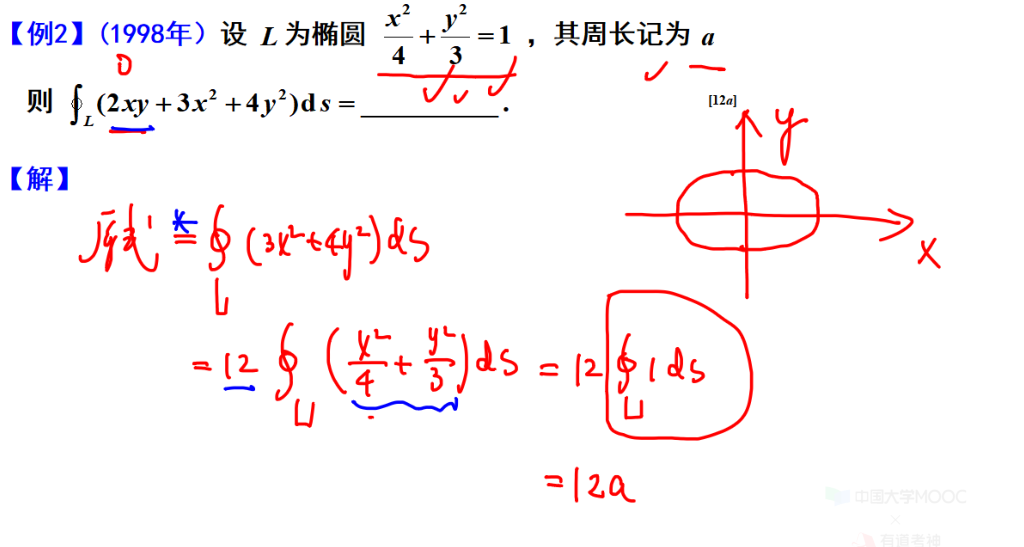 【例2】(1998年) 设 L 为椭圆 x²/4 + y²/3 = 1 ，其周长记为 a
0
则 ∮_L (2xy + 3x² + 4y²)ds = __________ .
[12a]
y
x
【解】
原式 = ∮_L (3x² + 4y²)ds
= 12 ∮_L (x²/4 + y²/3)ds = 12 ∮_L 1 ds
= 12a
中国大学MOOC
×
有道考神